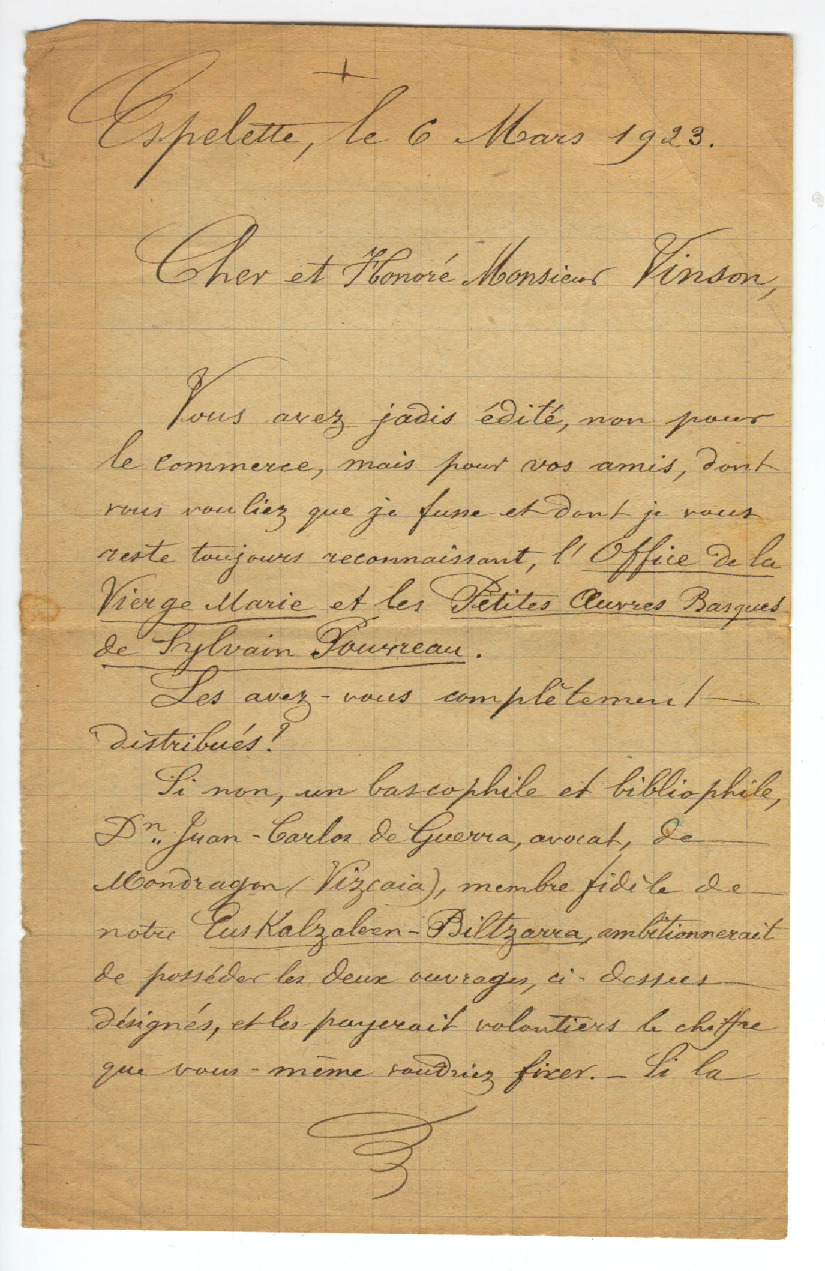 +
Espelette, le 6 Mars 1923.
Cher et Honoré Monsieur Vinson,
Vous avez jadis édité, non pour
le commerce, mais pour vos amis, dont
vous vouliez que je fusse et dont je vous
reste toujours reconnaissant, l'Office de la
Vierge Marie et les Petites Œuvres Basques
de Sylvain Pouvreau.
Les avez-vous complètement
distribués?
Si non, un bascophile et bibliophile,
Dn. Juan-Carlos de Guerra, avocat, de
Mondragon (Vizcaia), membre fidèle de
notre Euskalzaleen-Biltzarra, ambitionnerait
de posséder les deux ouvrages, ci-dessus
désignés, et les payerait volontiers le chiffre
que vous-même voudriez fixer. - Si la